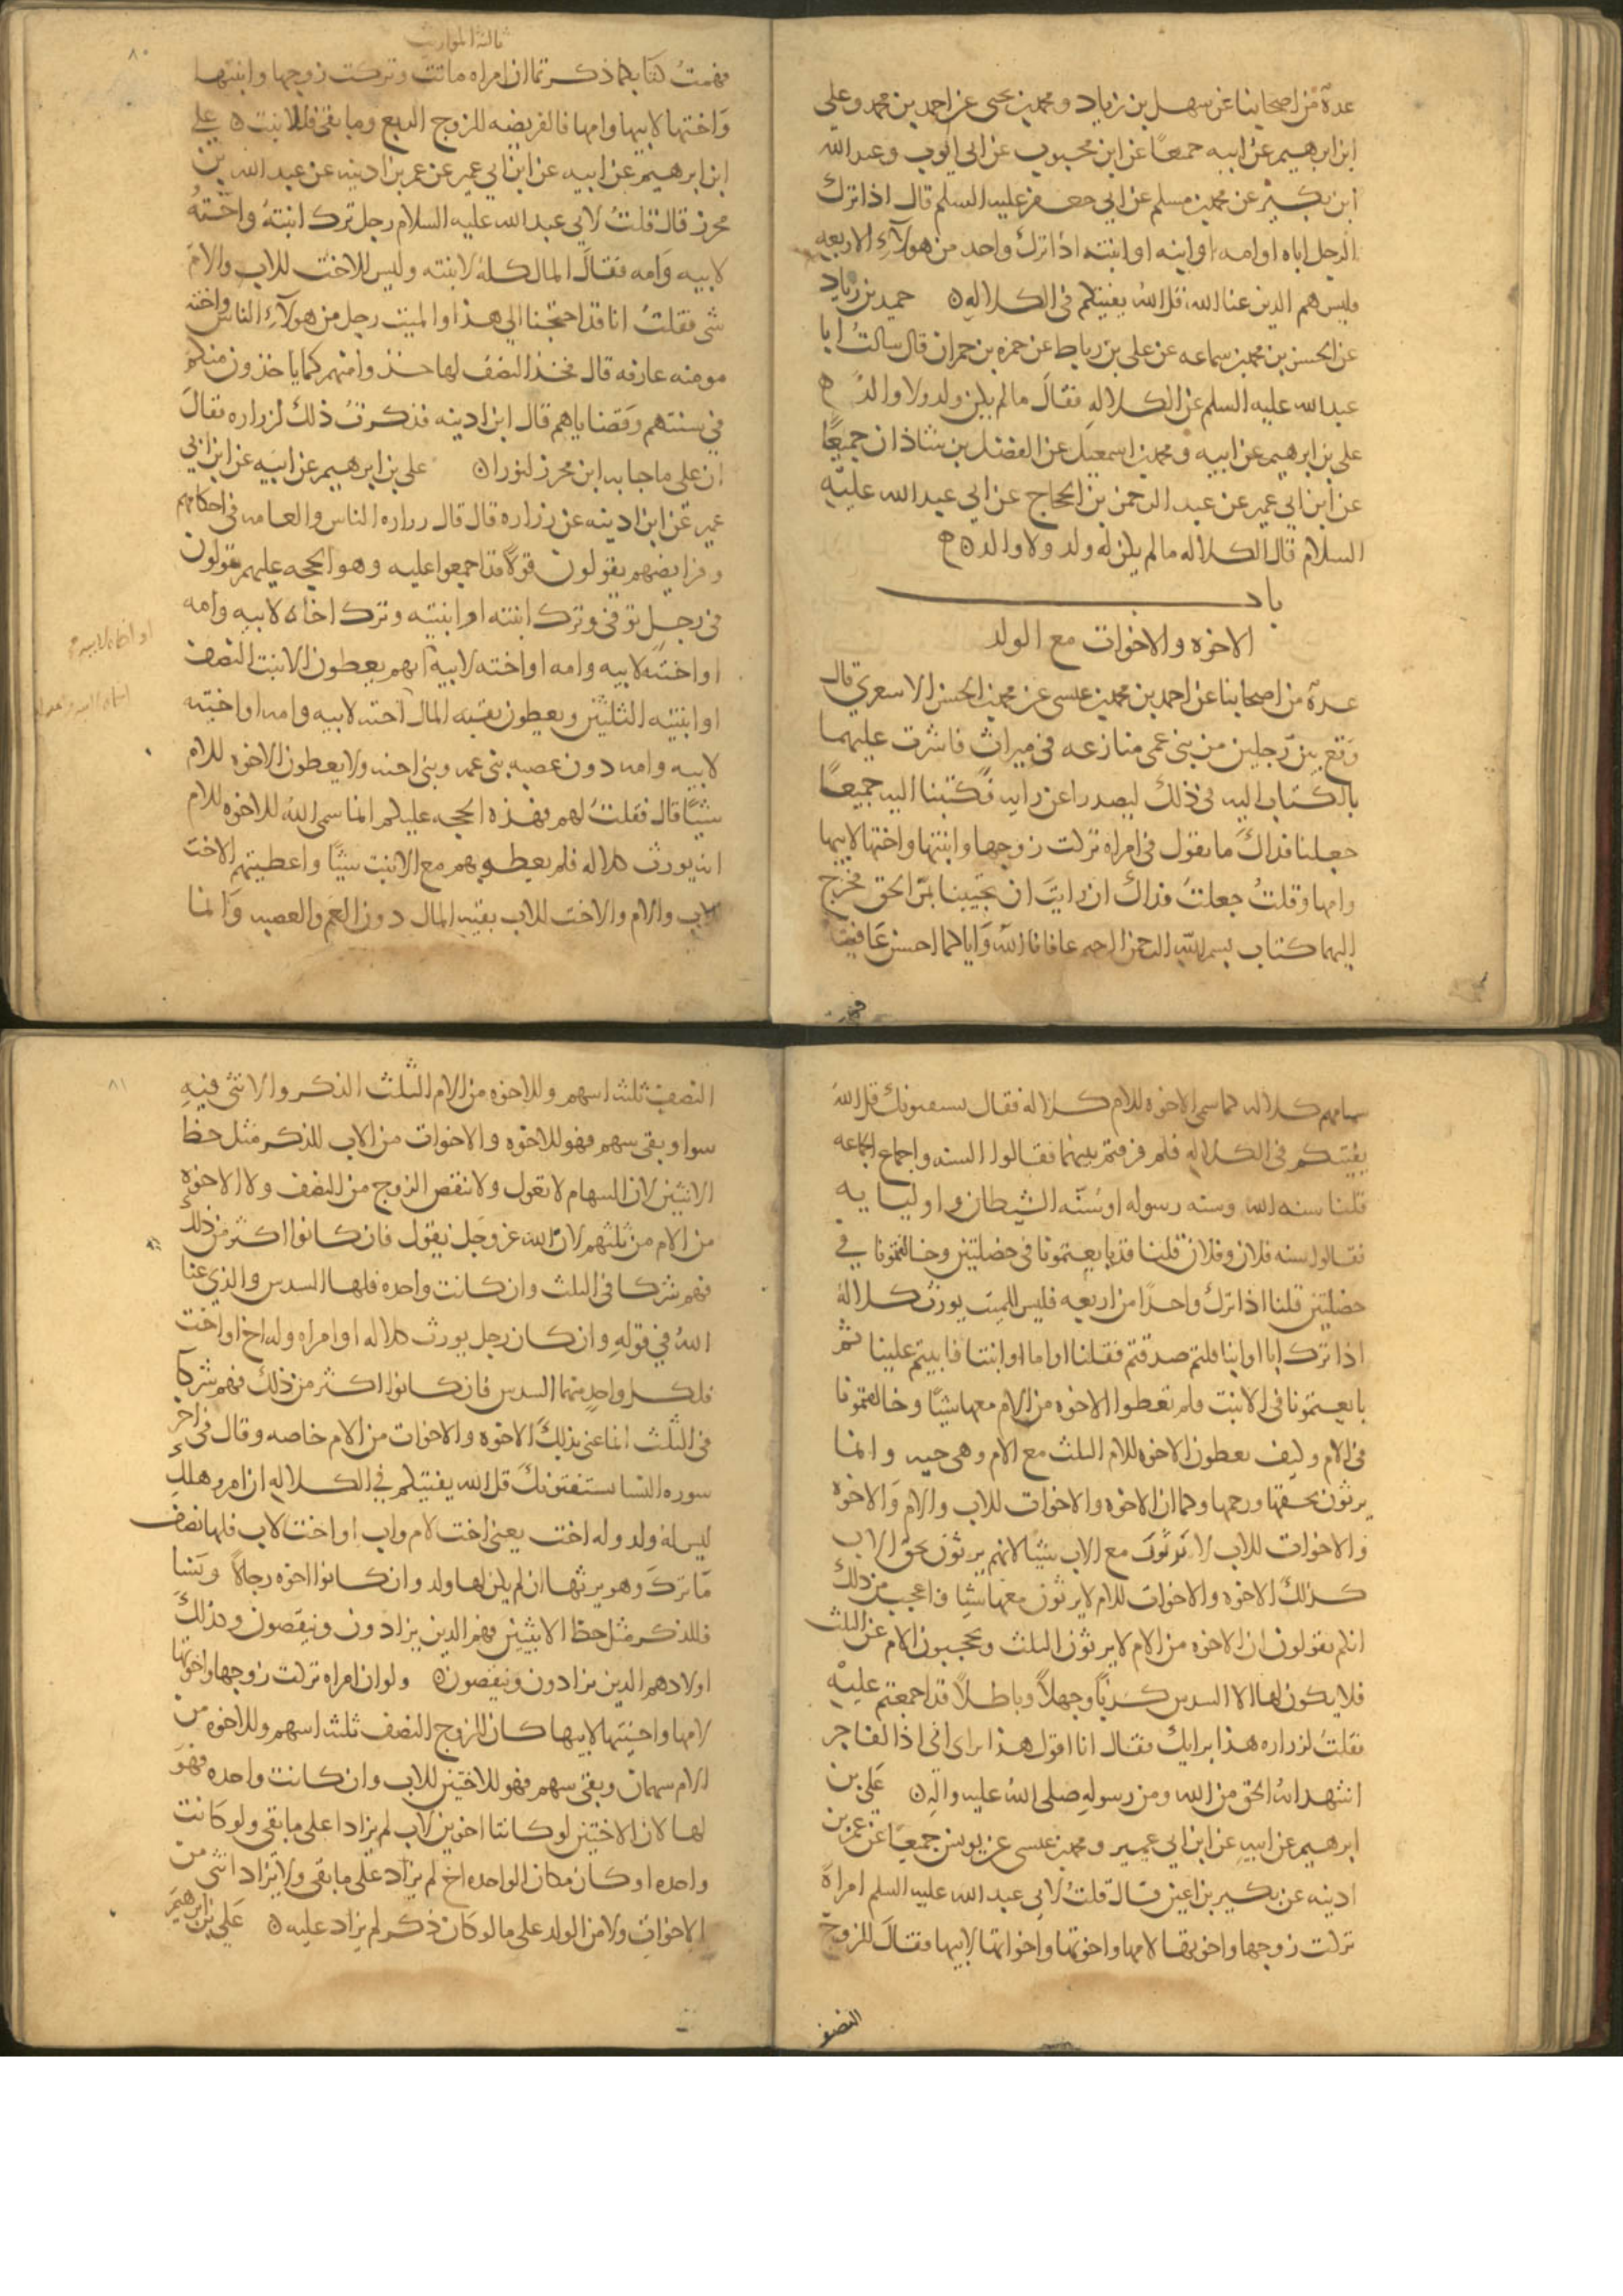 عدة من اصحابنا عن سهل بن زياد ومحمد بن يحيى عن احمد بن محمد وعلي
ابن ابرهيم عن ابيه جميعًا عن ابن محبوب عن ابي ايوب وعبد الله
ابن بكير عن محمد بن مسلم عن ابي جعفر عليه السلم قال اذا ترك
الرجل اباه او امه او ابنه او ابنته اذا ترك واحد من هولآء الاربعه
فليس هم الذين عنا الله قل الله يفتيكم في الكلاله ه حميد بن زياد
عن الحسن بن محمد بن سماعه عن علي بن رباط عن حمزه بن حمران قال سالت ابا
عبد الله عليه السلم عن الكلاله فقال ما لم يكن ولد ولا والد ه
علي بن ابرهيم عن ابيه ومحمد بن اسمعيل عن الفضل بن شاذان جميعًا
عن ابن ابي عمير عن عبد الرحمن بن الحجاج عن ابي عبد الله عليه
السلام قال الكلاله ما لم يكن له ولد ولا والد ه
باب
الاخوه والاخوات مع الولد
عدة من اصحابنا عن احمد بن محمد بن عيسى عن محمد بن الحسن الاسعري قال
وقع بين رجلين من بني عمي منازعه في ميراث فاشرت عليهما
بالكتاب اليه في ذلك ليصدرا عن رايه فكتبنا اليه جميعًا
جعلنا فداك ما تقول في امراه تركت زوجها وابنتها واختها لابيها
وامها وقلت جعلت فداك ان رايت ان تجيبنا بمرّ الحق فخرج
اليهما كتاب بسم الله الرحمن الرحيم عافانا الله واياكما احسن عافيه
فهمت
ثالثة المواريث
٨٠
فهمت كتابكما ذكرتما ان امراه ماتت وتركت زوجها وابنتها
واختها لابيها وامها فالفريضه للزوج الربع وما بقي فللابنت ه علي
ابن ابرهيم عن ابيه عن ابن ابي عمير عن عمر بن اذينه عن عبد الله بن
محرز قال قلت لابي عبد الله عليه السلام رجل ترك ابنته واخته
لابيه وامه فقال المال كله لابنته وليس للاخت للاب والام
شي فقلت انا قد احتجنا الي هذا والميت رجل من هولآء الناس واخته
مومنه عارفه قال فخذ النصف لها خذوا منهم كما ياخذون منكم
في سنتهم وقضاياهم قال ابن اذينه فذكرت ذلك لزراره فقال
ان على ما جا به ابن محرز لنورا ه علي بن ابرهيم عن ابيه عن ابن ابي
عمير عن ابن اذينه عن زراره قال قال زراره الناس والعامه في احكامهم
وفرايضهم يقولون قولا قد اجمعوا عليه وهو الحجه عليهم يقولون
في رجل توفي وترك ابنته او ابنتيه وترك اخاه لابيه وامه
او اخته لابيه وامه او اخته لابيه انهم يعطون الابنت النصف
او ابنتيه الثلثين ويعطون بقيه المال اخته لابيه وامه او اخته
لابيه وامه دون عصبه بني عمه وبني اخيه ولا يعطون الاخوه للام
شيًا قال فقلت لهم فهذه الحجه عليكم انما سمى الله للاخوه للام
انه يورث كلاله فلم يعطوهم مع الابنت شيًا واعطيتم الاخت
للاب والام والاخت للاب بقيه المال دون العم والعصبه وانما
سماهم كلاله كما سمى الاخوه للام كلاله فقال يستفتونك قل الله
يفتيكم في الكلاله فلم فرقتم بينهما فقالوا السنه واجماع الجماعه
قلنا سنه الله وسنه رسوله او سنه الشيطان واوليايه
فقالوا سنه فلان وفلان قلنا قد بايعتمونا في خصلتين وخالفتمونا في
خصلتين قلنا اذا ترك واحدًا من اربعه فليس الميت يورث كلاله
اذا ترك ابا او ابنا قلتم صدقتم فقلنا او اما او ابنتا فابيتم علينا ثم
بايعتمونا في الابنت فلم تعطوا الاخوه من الام معها شيًا وخالفتمونا
في الام وكيف تعطون الاخوه للام الثلث مع الام وهي حيه وانما
يرثون بحقها ورحمها وكما ان الاخوه والاخوات للاب والام والاخوه
والاخوات للاب لا يرثون مع الاب شيًا لانهم يرثون بحق الاب
كذلك الاخوه والاخوات للام لا يرثون معها شيًا واعجب من ذلك
انكم تقولون ان الاخوه من الام لا يرثون الثلث ويحجبون الام عن الثلث
فلا يكون لها الا السدس كذبًا وجهلًا وباطلًا قد اجمعتم عليه
فقلت لزراره هذا برايك فقال انا اقول هذا براي اني اذا لفاجر
اشهد انه الحق من الله ومن رسوله صلى الله عليه واله ه علي بن
ابرهيم عن ابيه عن ابن ابي عمير ومحمد بن عيسى عن يونس جميعًا عن عمر بن
اذينه عن بكير بن اعين قال قلت لابي عبد الله عليه السلم امراة
تركت زوجها واخوتها لامها واخوتها واخواتها لابيها فقال للزوج
النصف
٨١
النصف ثلثه اسهم وللاخوه من الام الثلث الذكر والانثى فيه
سوا وبقي سهم فهو للاخوه والاخوات من الاب للذكر مثل حظ
الانثيين لان السهام لا تعول ولا ينقص الزوج من النصف ولا الاخوه
من الام من ثلثهم لان الله عز وجل يقول فان كانوا اكثر من ذلك
فهم شركا في الثلث وان كانت واحده فلها السدس والذي عنا
الله في قوله وان كان رجل يورث كلاله او امراه وله اخ او اخت
فلكل واحد منهما السدس فان كانوا اكثر من ذلك فهم شركآ
في الثلث انما عنى بذلك الاخوه والاخوات من الام خاصه وقال في اخر
سوره النسا يستفتونك قل الله يفتيكم في الكلاله ان امرو هلك
ليس له ولد وله اخت يعني اخت لام واب او اخت لاب فلها نصف
ما ترك وهو يرثها ان لم يكن لها ولد وان كانوا اخوه رجالا ونسا
فللذكر مثل حظ الانثيين فهم الذين يزادون وينقصون وكذلك
اولادهم الذين يزادون وينقصون ه ولو ان امراه تركت زوجها واخوتها
لامها واختيها لابيها كان للزوج النصف ثلثه اسهم وللاخوه من
الام سهمان وبقي سهم فهو للاختين للاب وان كانت واحده فهو
لها لان الاختين لو كانتا اخوين لاب لم يزادا على ما بقي ولو كانت
واحده او كان مكان الواحده اخ لم يزاد على ما بقي ولا يزاد انثى من
الاخوات ولا من الولد على ما لو كان ذكر لم يزاد عليه ه علي بن ابرهيم